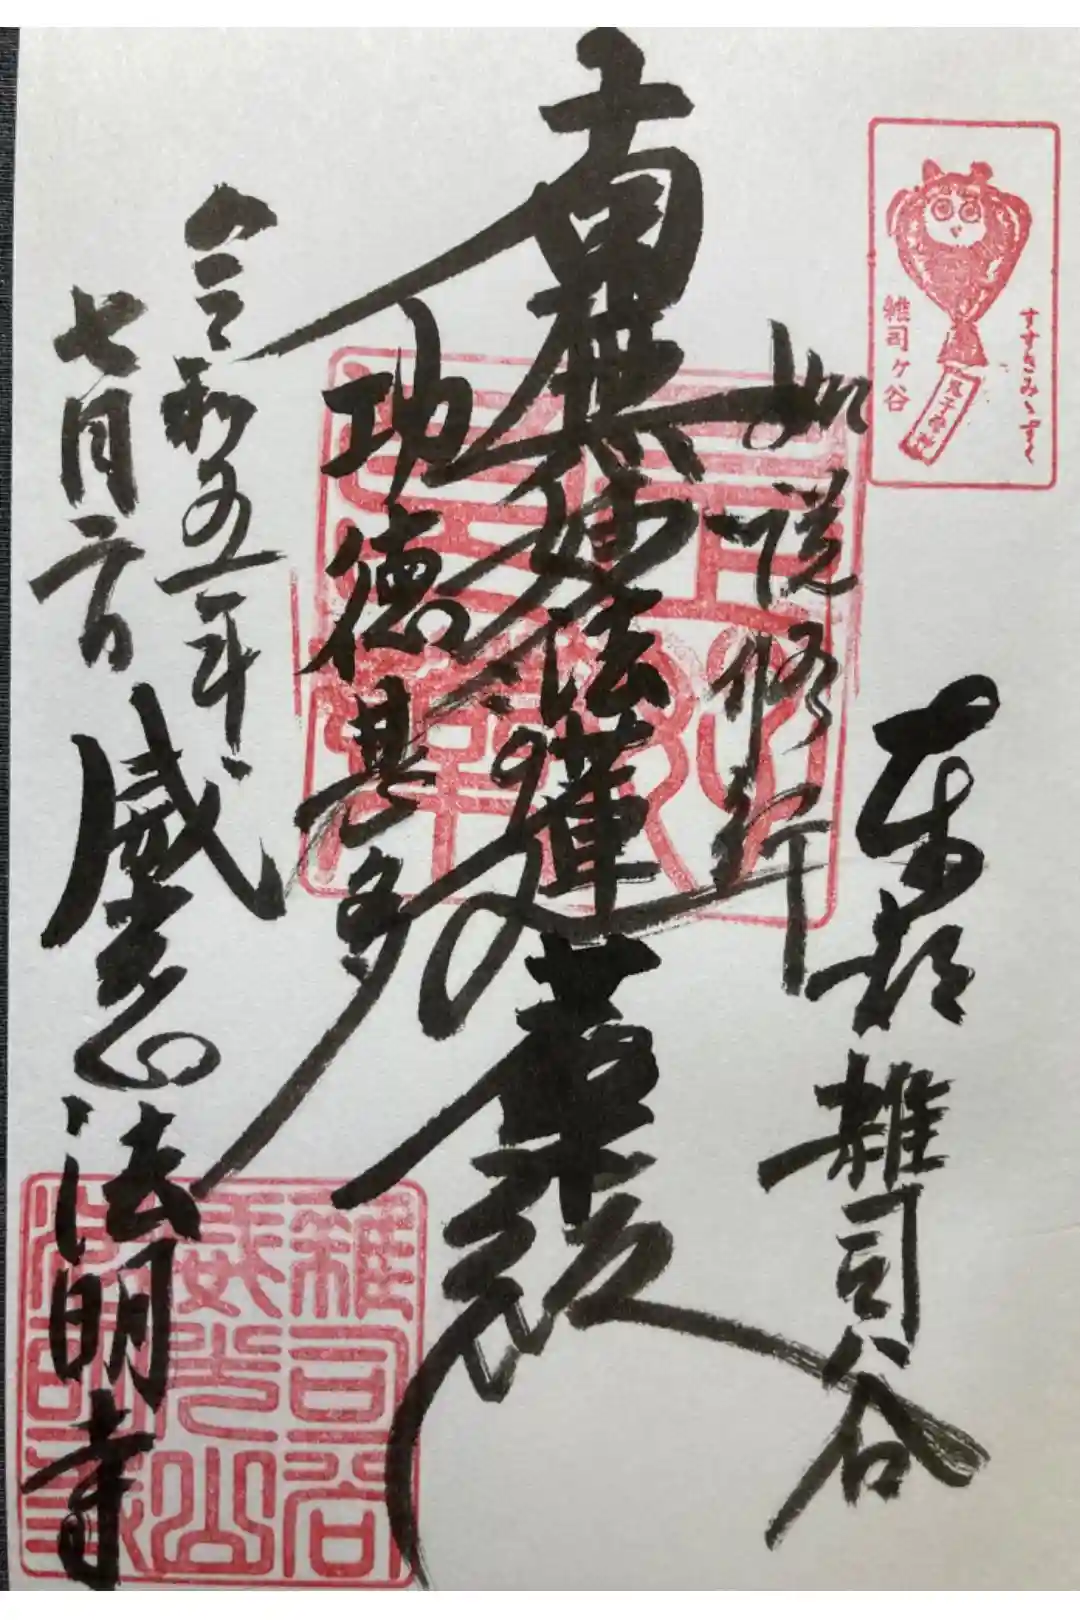 すすきみゝずく
雑司ヶ谷
鬼子母神
東都 雑司谷
如説修行
南無妙法蓮華経
功徳甚多
令和五年
七月
威光山 法明寺
雜司谷
威光山
法明寺